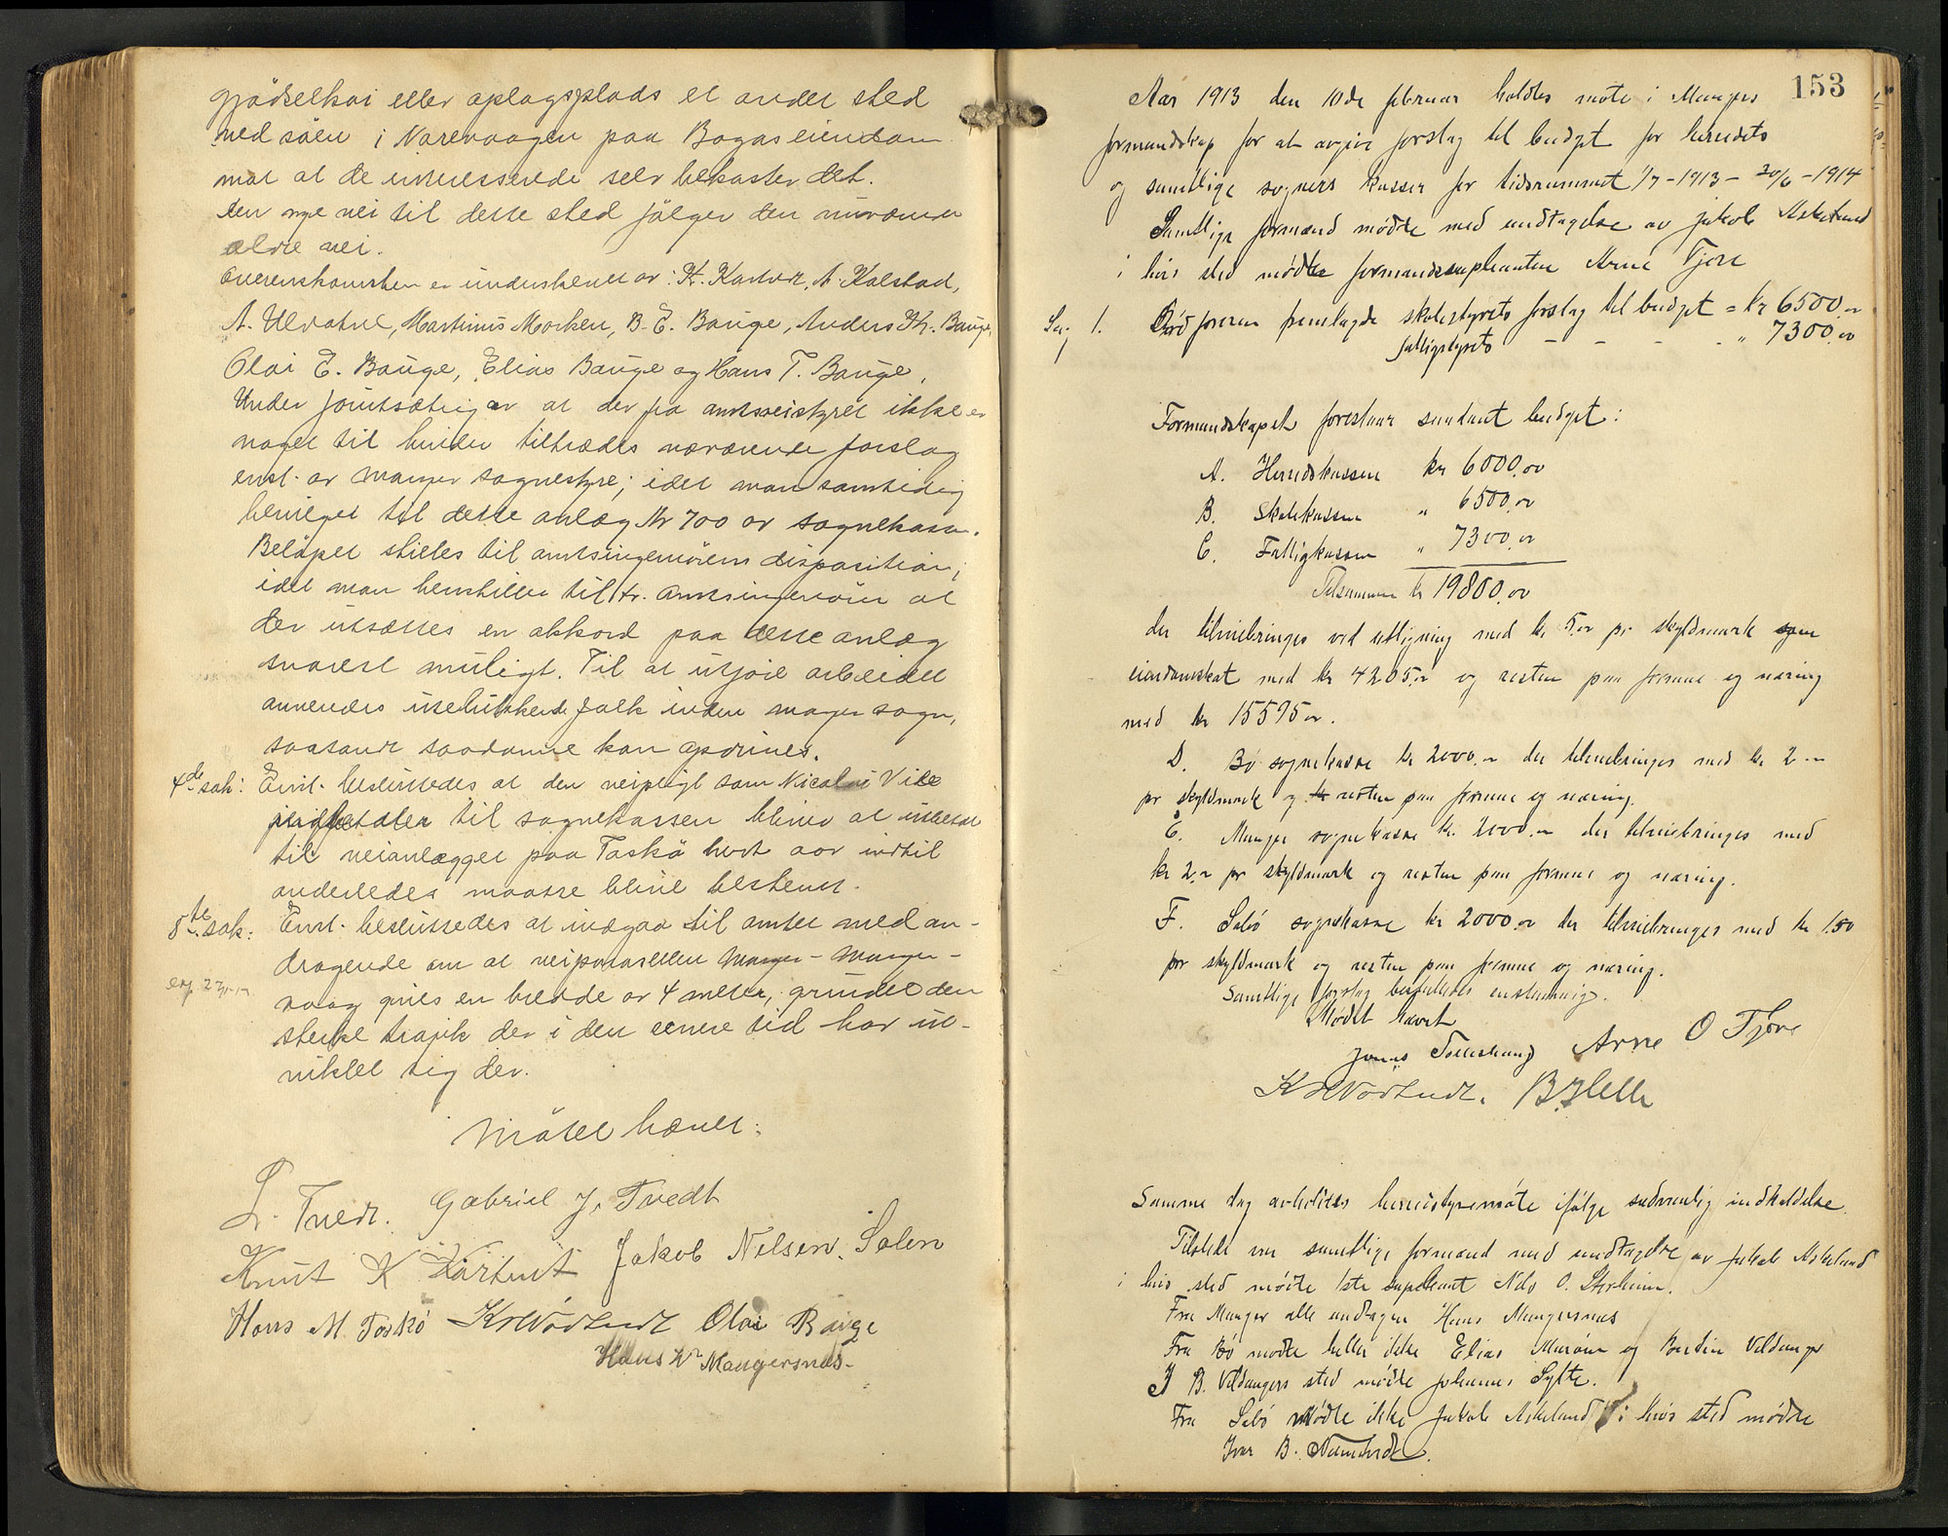 gjødselkai eller oplagsplads et andet sted
ved söen i Narevaagen paa Boges eiendom
mot at de interesserede selv bekoster det.
Den nye vei til dette sted følger den nuværende
ældre vei.
Overenskomsten er underskrevet av: K. Kartveit, A. Kalstad,
A. Ulvatne, Martinus Morken, B. E. Bauge, Anders Kr. Bauge,
Olai E. Bauge, Elias Bauge og Hans T. Bauge,
Under forutsætning av at der fra amtsveistyret ikke er
noget til hinder tiltrædes nærværende forslag
enst. av Manger sognestyre; idet man samtidig
beviliget til dette anlæg Kr 700 av sognekassen.
Beløpet stilles til amtsingeniørens disposition;
idet man henstiller til hr. amtsingeniören at
der utsættes en akkord paa dette anlæg
snarest muligt. Til at utføre arbeidet
anvendes utelukkende folk inden Manger sogn,
saasandt saadanne kan opdrives.
4de sak: Enst. besluttedes at den veipligt som Nicolai Vike
betaler til sognekassen bliver at utbetale
til veianlægget paa Toskö hvert aar indtil
anderledes maatte blive bestemt.
8de sak: Enst. besluttedes at indgaa til amtet med an-
dragende om at veiparsellen Manger - Manger-
vaag gives en bredde av 4 meter, grundet den
sterke trafik der i den senere tid har ut-
viklet sig der.
Mötet hævet:
L. Tvedt. Gabriel J. Tvedt
Knut K Kartveit Jakob Nilsen. Solen
Hans M. Toskö Olai Bauge
Hans Mangersnes.
153
Aar 1913 den 10de februar holdtes møte i Manger
formandskap for at avgive forslag til budget for herredets
og samtlige sogners kasser for tidsrummet 1/7-1913 - 30/6-1914
Samtlige formænd mødte med undtagelse av Jakob Askeland
i hvis sted mødte formandssupleanten Arne Fjore
Sag 1. Ordføreren fremlagde skolestyrets forslag til budget = kr 6500.00
fattigstyrets - - - - " 7300.00
Formandskapet foreslaar saadant budget:
A. Herredskassen kr 6000.00
B. Skolekassen " 6500.00
C. Fattigkassen " 7300.00
Tilsammen kr 19800.00
der tilveiebringes ved utligning med kr 5.00 pr skyldmark som
eiendomskat med kr 4205.00 og resten paa formue og næring
med kr 15595.00.
D. Bø sognekasse kr 2000.00 der tilveiebringes med kr 2.00
pr skyldmark og resten paa formue og næring.
E. Manger sognekasse kr. 2000.00 der tilveiebringes med
kr 2.00 pr skyldmark og resten paa formue og næring.
F. Sæbø sognekasse kr 2000.00 der tilveiebringes med kr 1.50
pr skyldmark og resten paa formue og næring.
Samtlige forslag besluttedes enstemmig.
Mødet hævet
Arne O Fjøre
B. J. Helle
Samme dag avholdtes herredstyremøte ifølge sædvanlig indkaldelse.
Tilstede var samtlige formænd med undtagelse av Jakob Askeland
i hvis sted møtte 1ste supleant Nils O. Storheim.
Fra Manger alle undtagen Hans Mangersnes
Fra Bø møtte heller ikke Elias og Bertin Vildanger
I B. Vildangers sted mødte Johannes Sylte.
Fra Sæbø mødte ikke Jakob Askeland i hvis sted mødte
Ivar B.